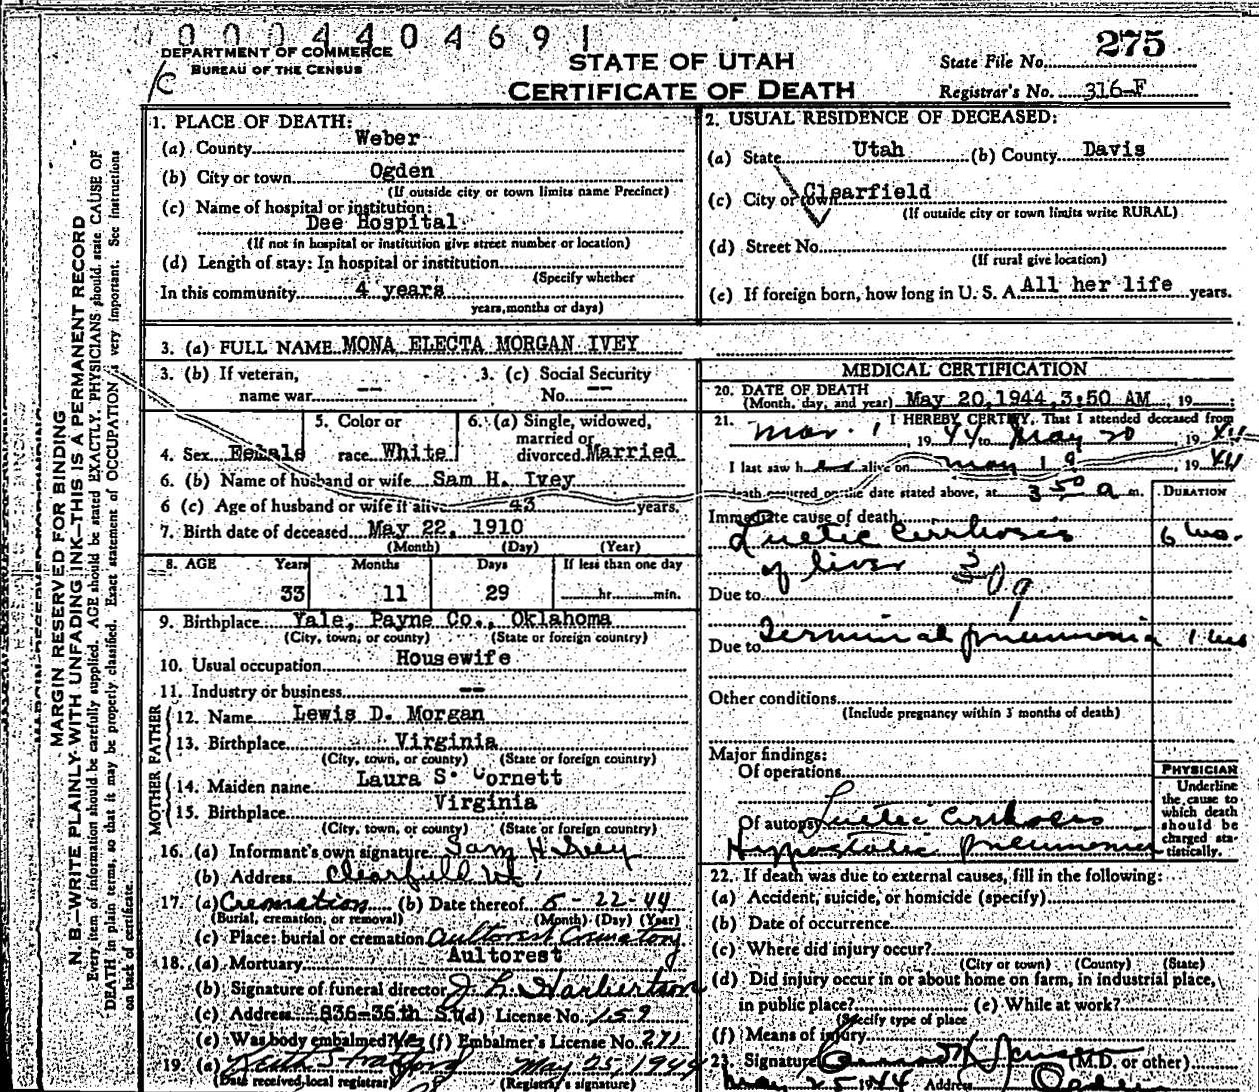 0 0 0 4 4 0 4 6 9 1
DEPARTMENT OF COMMERCE
BUREAU OF THE CENSUS
STATE OF UTAH
CERTIFICATE OF DEATH
State File No. 275
Registrar's No. 316-F
MARGIN RESERVED FOR BINDING
N. B.—WRITE PLAINLY—WITH UNFADING INK—THIS IS A PERMANENT RECORD
Every item of information should be carefully supplied. AGE should be stated EXACTLY. PHYSICIANS should state CAUSE OF
DEATH in plain terms, so that it may be properly classified. Exact statement of OCCUPATION is very important. See instructions
on back of certificate.
1. PLACE OF DEATH:
(a) County Weber
(b) City or town Ogden
(If outside city or town limits name Precinct)
(c) Name of hospital or institution:
Dee Hospital
(If not in hospital or institution give street number or location)
(d) Length of stay: In hospital or institution
(Specify whether
In this community 4 years
years, months or days)
2. USUAL RESIDENCE OF DECEASED:
(a) State Utah (b) County Davis
(c) City or town Clearfield
(If outside city or town limits write RURAL)
(d) Street No.
(If rural give location)
(e) If foreign born, how long in U. S. A. All her life years.
3. (a) FULL NAME MONA ELECTA MORGAN IVEY
3. (b) If veteran, 3. (c) Social Security
name war -- No. --
4. Sex Female 5. Color or race White 6. (a) Single, widowed, married or divorced Married
6. (b) Name of husband or wife Sam H. Ivey
6 (c) Age of husband or wife if alive 43 years.
7. Birth date of deceased May 22, 1910
(Month) (Day) (Year)
8. AGE Years Months Days If less than one day
33 11 29 hr. min.
9. Birthplace Yale, Payne Co., Oklahoma
(City, town, or county) (State or foreign country)
10. Usual occupation Housewife
11. Industry or business --
FATHER
12. Name Lewis D. Morgan
13. Birthplace Virginia
(City, town, or county) (State or foreign country)
MOTHER
14. Maiden name Laura S. Cornett
15. Birthplace Virginia
(City, town, or county) (State or foreign country)
16. (a) Informant's own signature Sam H Ivey
(b) Address Clearfield Ut.
17. (a) Cremation (b) Date thereof 5-22-44
(Burial, cremation, or removal) (Month) (Day) (Year)
(c) Place: burial or cremation Aultorest Crematory
18. (a) Mortuary Aultorest
(b) Signature of funeral director J. L. Harbertson
(c) Address 836-36th St (d) License No. 159
(e) Was body embalmed? Yes (f) Embalmer's License No. 271
19. (a) Keith Stratford May 25, 1944
(Date received local registrar) (Registrar's signature)
MEDICAL CERTIFICATION
20. DATE OF DEATH
(Month, day, and year) May 20, 1944, 3:50 AM, 19
21. I HEREBY CERTIFY, That I attended deceased from
Mar. 1, 1944 to May 20, 1944
I last saw her alive on May 19, 1944
death occurred on the date stated above, at 3 50 a m.
DURATION
Immediate cause of death
Luetic Cirrhosis 6 mo.
of liver 30 9
Due to
Due to Terminal pneumonia 1
Other conditions
(Include pregnancy within 3 months of death)
Major findings:
Of operations
Of autopsy Luetic Cirrhosis
Hypostatic Pneumonia
PHYSICIAN
Underline
the cause to
which death
should be
charged sta-
tistically.
22. If death was due to external causes, fill in the following:
(a) Accident, suicide, or homicide (specify)
(b) Date of occurrence
(c) Where did injury occur?
(City or town) (County) (State)
(d) Did injury occur in or about home on farm, in industrial place,
in public place? (e) While at work?
(Specify type of place
(f) Means of injury
23. Signature (M.D. or other)
May 25 1944 Address